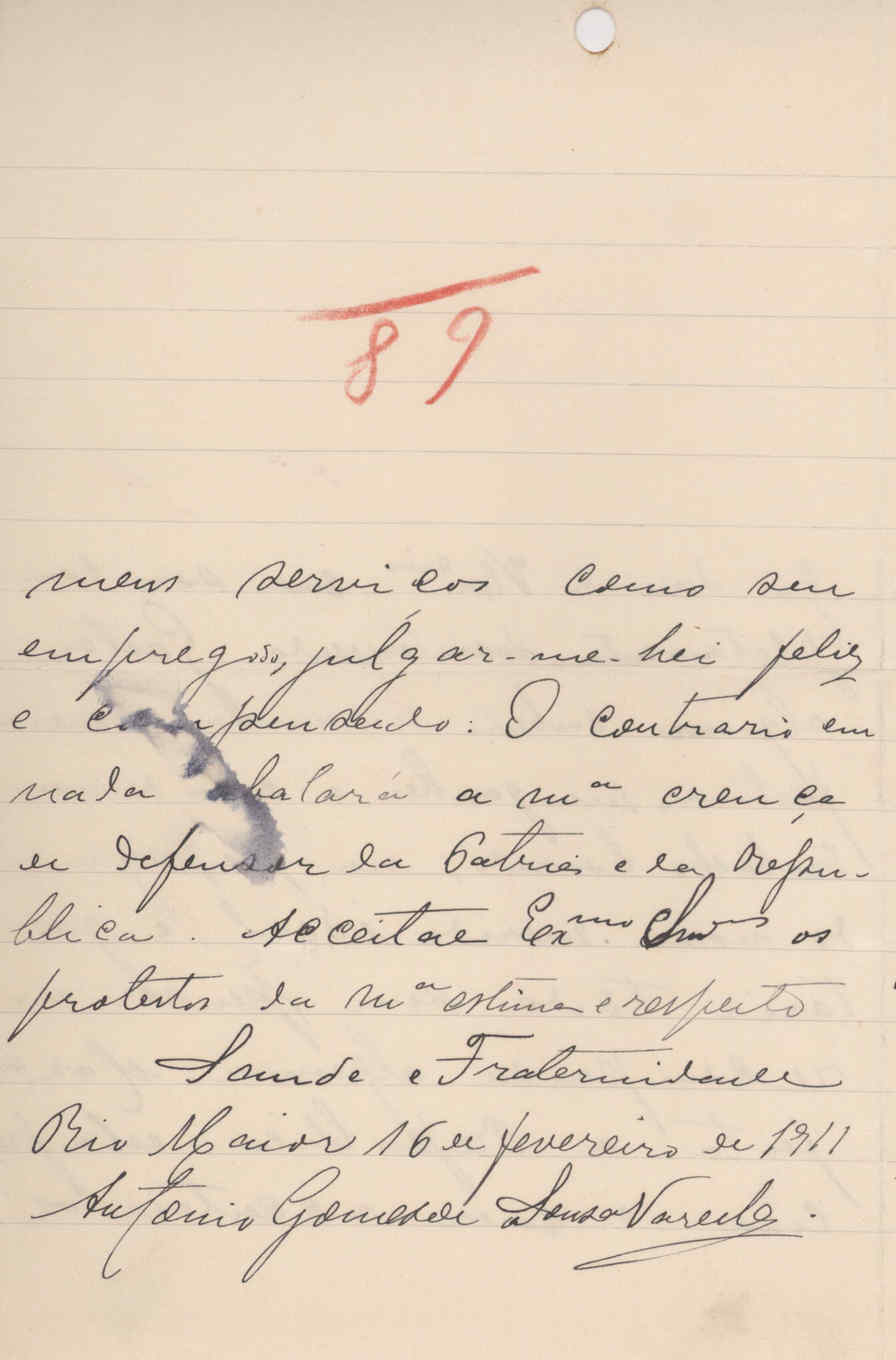 89
meus serviços como seu
empregado, julgar-me-hei feliz
e compensado. O contrario em
nada abalará a mª crença
de defensor da Patria e da Repu-
blica. Acceitae Exmos Snres os
protestos da mª estima e respeito
Saude e Fraternidade
Rio Maior 16 de fevereiro de 1911
Antonio Gomes de Sousa Varella.